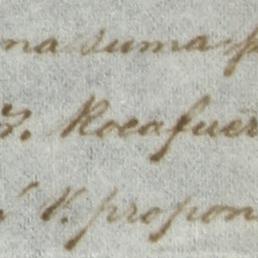 na suma p
S. Rocafuer
á V. propon